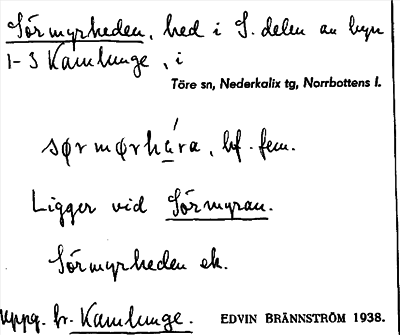 Sörmyrheden, hed i S. delen av byn
1-3 Kamlunge, i
Töre sn, Nederkalix tg, Norrbottens l.
sørmørhára, bf. fem.
Ligger vid Sörmyran.
Sörmyrheden ek.
Uppg. fr. Kamlunge. EDVIN BRÄNNSTRÖM 1938.